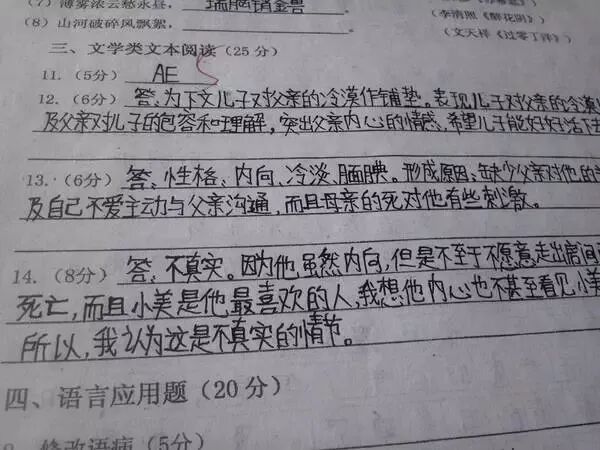 (7) 薄雾浓云愁永昼，瑞脑销金兽
(8) 山河破碎风飘絮，
(李清照《醉花阴》)
(文天祥《过零丁洋》)
三、文学类文本阅读(25分)
11. (5分) AE
12. (6分) 答：为下文儿子对父亲的冷漠作铺垫。表现儿子对父亲的冷漠
及父亲对儿子的包容和理解，突出父亲内心的情感，希望儿子能好好活下去
13. (6分) 答：性格、内向、冷淡、腼腆。形成原因：缺少父亲对他的
及自己不爱主动与父亲沟通，而且母亲的死对他有些刺激。
14. (8分) 答：不真实。因为他虽然内向，但是不至于不愿意走出房间
死亡，而且小美是他最喜欢的人，我想他内心也不甚至看见小美
所以，我认为这是不真实的情节。
四、语言应用题(20分)
修改语病(5分)